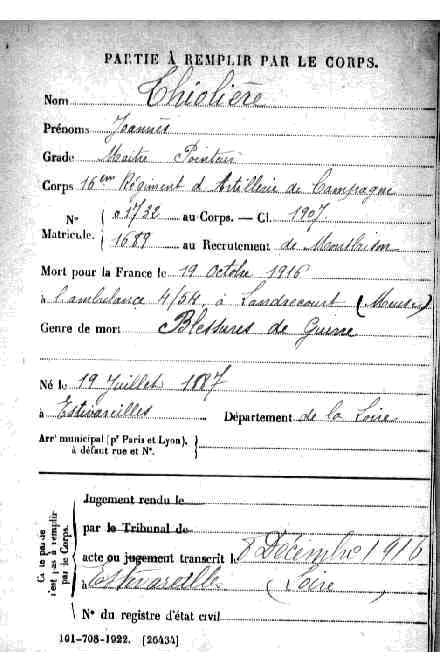 PARTIE À REMPLIR PAR LE CORPS.
Nom Thiolière
Prénoms Joannès
Grade Maitre Pointeur
Corps 16em Régiment d'Artillerie de Campagne
N° Matricule. 01732 au Corps. — Cl. 1907
1689 au Recrutement de Montbrison
Mort pour la France le 19 Octobre 1916
à l'ambulance 4/54 à Landrecourt (Meuse)
Genre de mort Blessures de Guerre
Né le 19 Juillet 1887
à Estivareilles Département de la Loire
Arrt municipal (pr Paris et Lyon),
à défaut rue et N°.
Cette partie
n'est pas à remplir
par le Corps.
Jugement rendu le
par le Tribunal de
acte ou jugement transcrit le 8 Décembre 1916
à Estivareilles Loire
N° du registre d'état civil
101-708-1922. [26434]